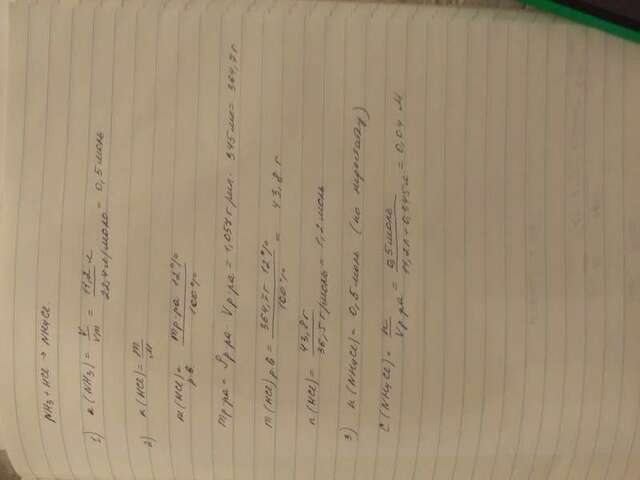 NH3 + HCl → NH4Cl
1) n (NH3) = V/Vm = 11,2 л / 22,4 л/моль = 0,5 моль
2) n (HCl) = m/M
m (HCl) р.в = mр-ра 12% / 100%
mр-ра = ρр-ра · Vр-ра = 1,054 г/мл · 345 мл = 364,7 г
m (HCl) р.в = 364,7 г · 12% / 100% = 43,8 г.
n (HCl) = 43,8 г / 36,5 г/моль = 1,2 моль
3) n (NH4Cl) = 0,5 моль (по недостатку)
C (NH4Cl) = n / Vр-ра = 0,5 моль / 11,2 л + 0,345 л = 0,04 М